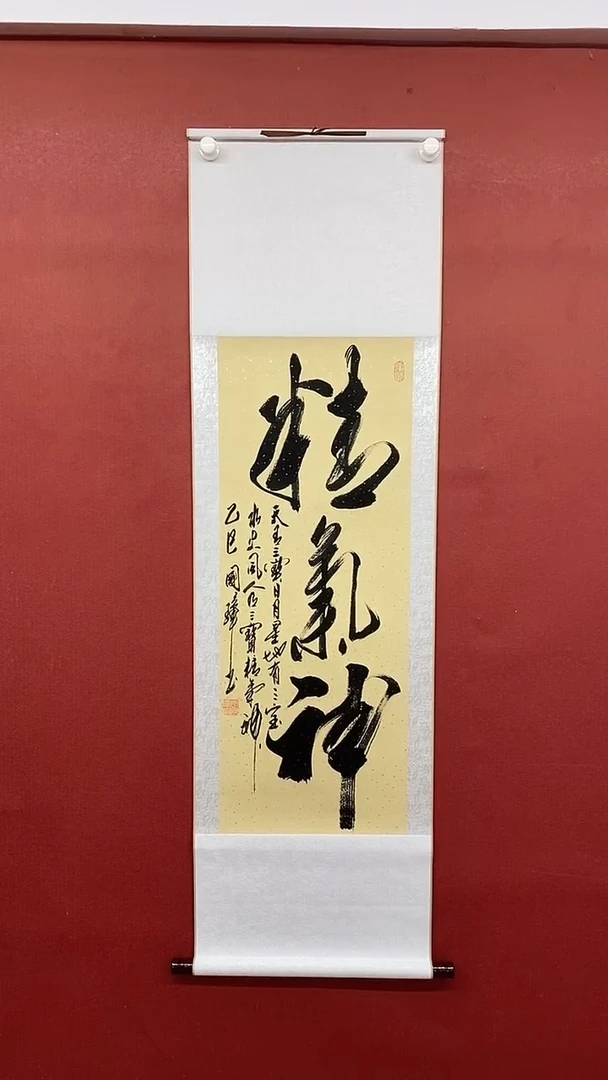 精氣神
天有三寶日月星地有三宝
水火風人有三寶精氣神
乙巳國璋书